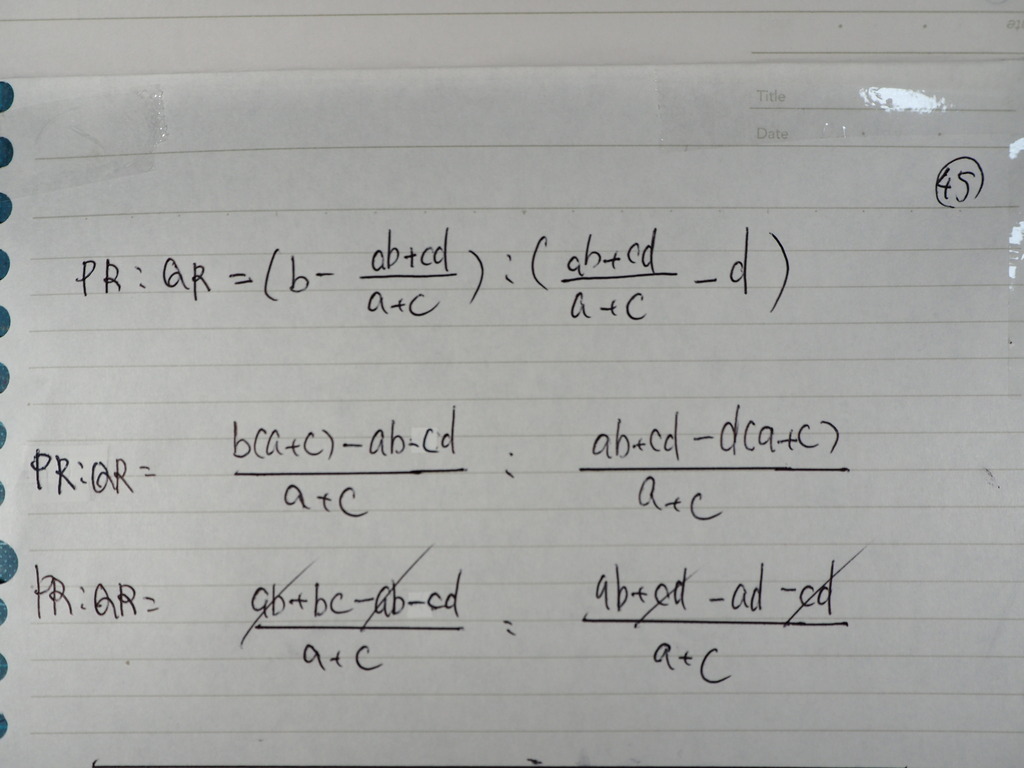 Title
Date
45
PR : QR = (b - \frac{ab+cd}{a+c}) : (\frac{ab+cd}{a+c} - d)
PR : QR = \frac{b(a+c)-ab-cd}{a+c} : \frac{ab+cd-d(a+c)}{a+c}
PR : QR = \frac{ab+bc-ab-cd}{a+c} : \frac{ab+cd-ad-cd}{a+c}